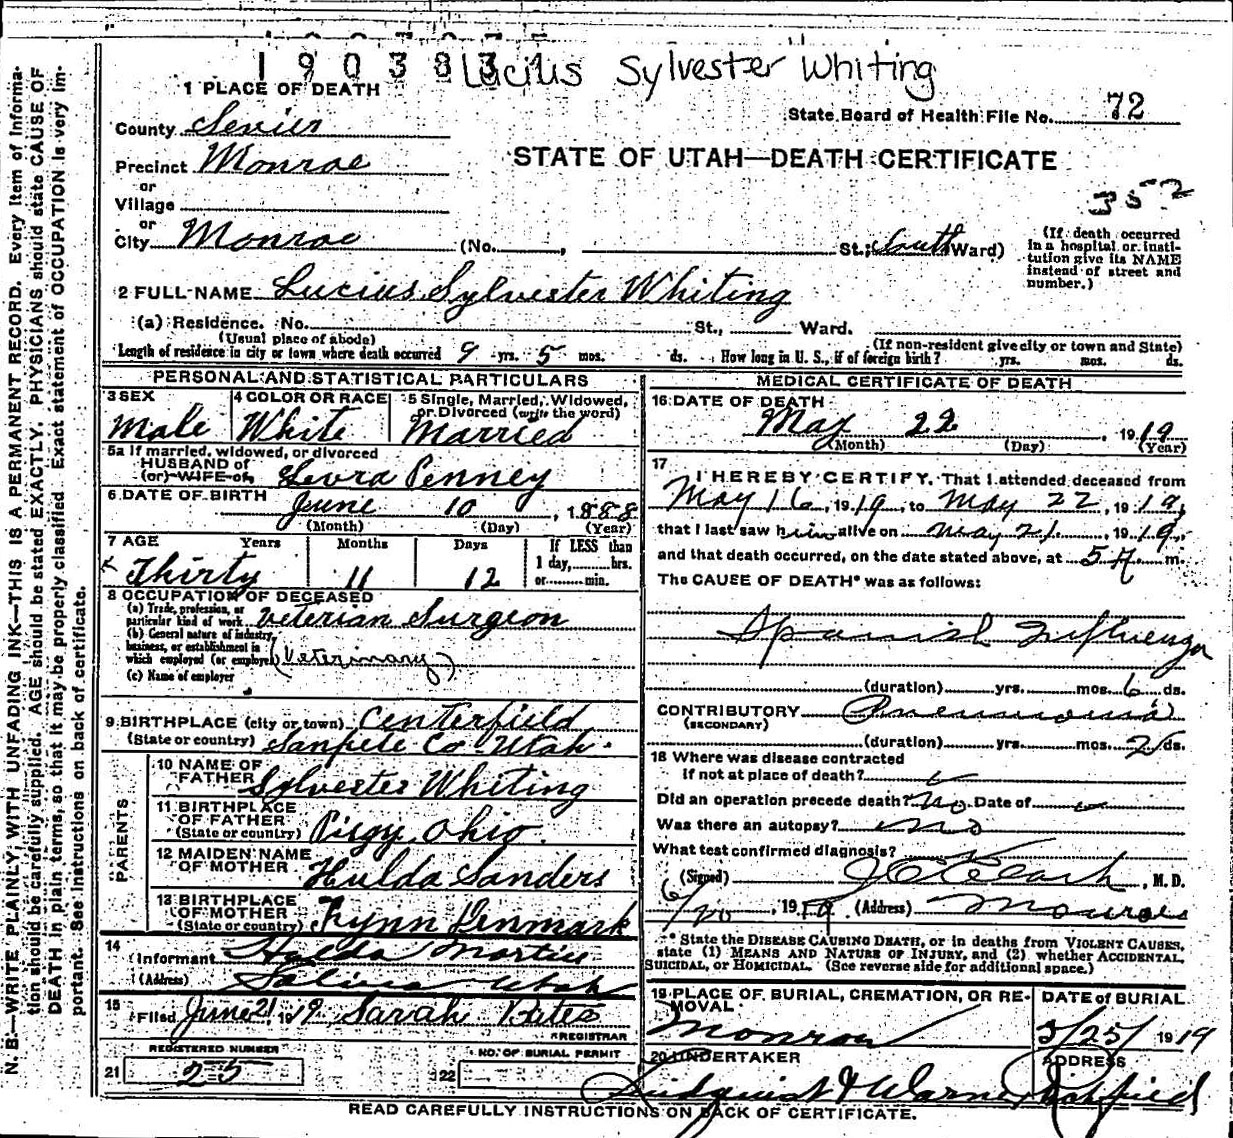 1903831 Lucius Sylvester Whiting
1 PLACE OF DEATH
State Board of Health File No. 72
County Sevier
STATE OF UTAH—DEATH CERTIFICATE
Precinct Monroe
or
Village
352
or
City Monroe (No. , St.; South Ward)
(If death occurred in a hospital or institution give its NAME instead of street and number.)
2 FULL NAME Lucius Sylvester Whiting
(a) Residence. No. St., Ward.
(Usual place of abode) (If non-resident give city or town and State)
Length of residence in city or town where death occurred 9 yrs. 5 mos. ds. How long in U. S., if of foreign birth? yrs. mos. ds.
PERSONAL AND STATISTICAL PARTICULARS
3 SEX 4 COLOR OR RACE 5 Single, Married, Widowed, or Divorced (write the word)
Male White Married
5a If married, widowed, or divorced
HUSBAND of
(or) WIFE of Levra Penney
6 DATE OF BIRTH June 10, 1888
(Month) (Day) (Year)
7 AGE Years Months Days If LESS than 1 day, hrs. or min.
Thirty 11 12
8 OCCUPATION OF DECEASED
(a) Trade, profession, or particular kind of work Veterian Surgeon
(b) General nature of industry, business, or establishment in which employed (or employer) (Veterinary)
(c) Name of employer
9 BIRTHPLACE (city or town) Centerfield
(State or country) Sanpete Co Utah.
PARENTS
10 NAME OF FATHER Sylvester Whiting
11 BIRTHPLACE OF FATHER (State or country) Pisgy, Ohio.
12 MAIDEN NAME OF MOTHER Hulda Sanders
13 BIRTHPLACE OF MOTHER (State or country) Fynn Denmark
14 Informant Hulda Martin
(Address) Salina Utah
15 Filed June 21 1919 Sarah Bates
REGISTRAR
REGISTERED NUMBER
21 25
NO. OF BURIAL PERMIT
22
MEDICAL CERTIFICATE OF DEATH
16 DATE OF DEATH
May 22, 1919
(Month) (Day) (Year)
17
I HEREBY CERTIFY, That I attended deceased from
May 16, 1919, to May 22, 1919,
that I last saw him alive on May 21, 1919,
and that death occurred, on the date stated above, at 5 A m.
The CAUSE OF DEATH* was as follows:
Spanish Influenza
(duration) yrs. mos. 6 ds.
CONTRIBUTORY Pneumonia
(SECONDARY)
(duration) yrs. mos. 2 ds.
18 Where was disease contracted
if not at place of death?
Did an operation precede death? No Date of
Was there an autopsy? no
What test confirmed diagnosis?
(Signed) , M. D.
6/20, 1919 (Address) Monroe
* State the DISEASE CAUSING DEATH, or in deaths from VIOLENT CAUSES, state (1) MEANS AND NATURE OF INJURY, and (2) whether ACCIDENTAL, SUICIDAL, or HOMICIDAL. (See reverse side for additional space.)
19 PLACE OF BURIAL, CREMATION, OR REMOVAL DATE of BURIAL
Monroe 5/25/ 1919
20 UNDERTAKER ADDRESS
Lindquist & Warner Richfield
READ CAREFULLY INSTRUCTIONS ON BACK OF CERTIFICATE.
N. B.—WRITE PLAINLY, WITH UNFADING INK—THIS IS A PERMANENT RECORD. Every item of information should be carefully supplied. AGE should be stated EXACTLY. PHYSICIANS should state CAUSE OF DEATH in plain terms, so that it may be properly classified. Exact statement of OCCUPATION is very important. See instructions on back of certificate.